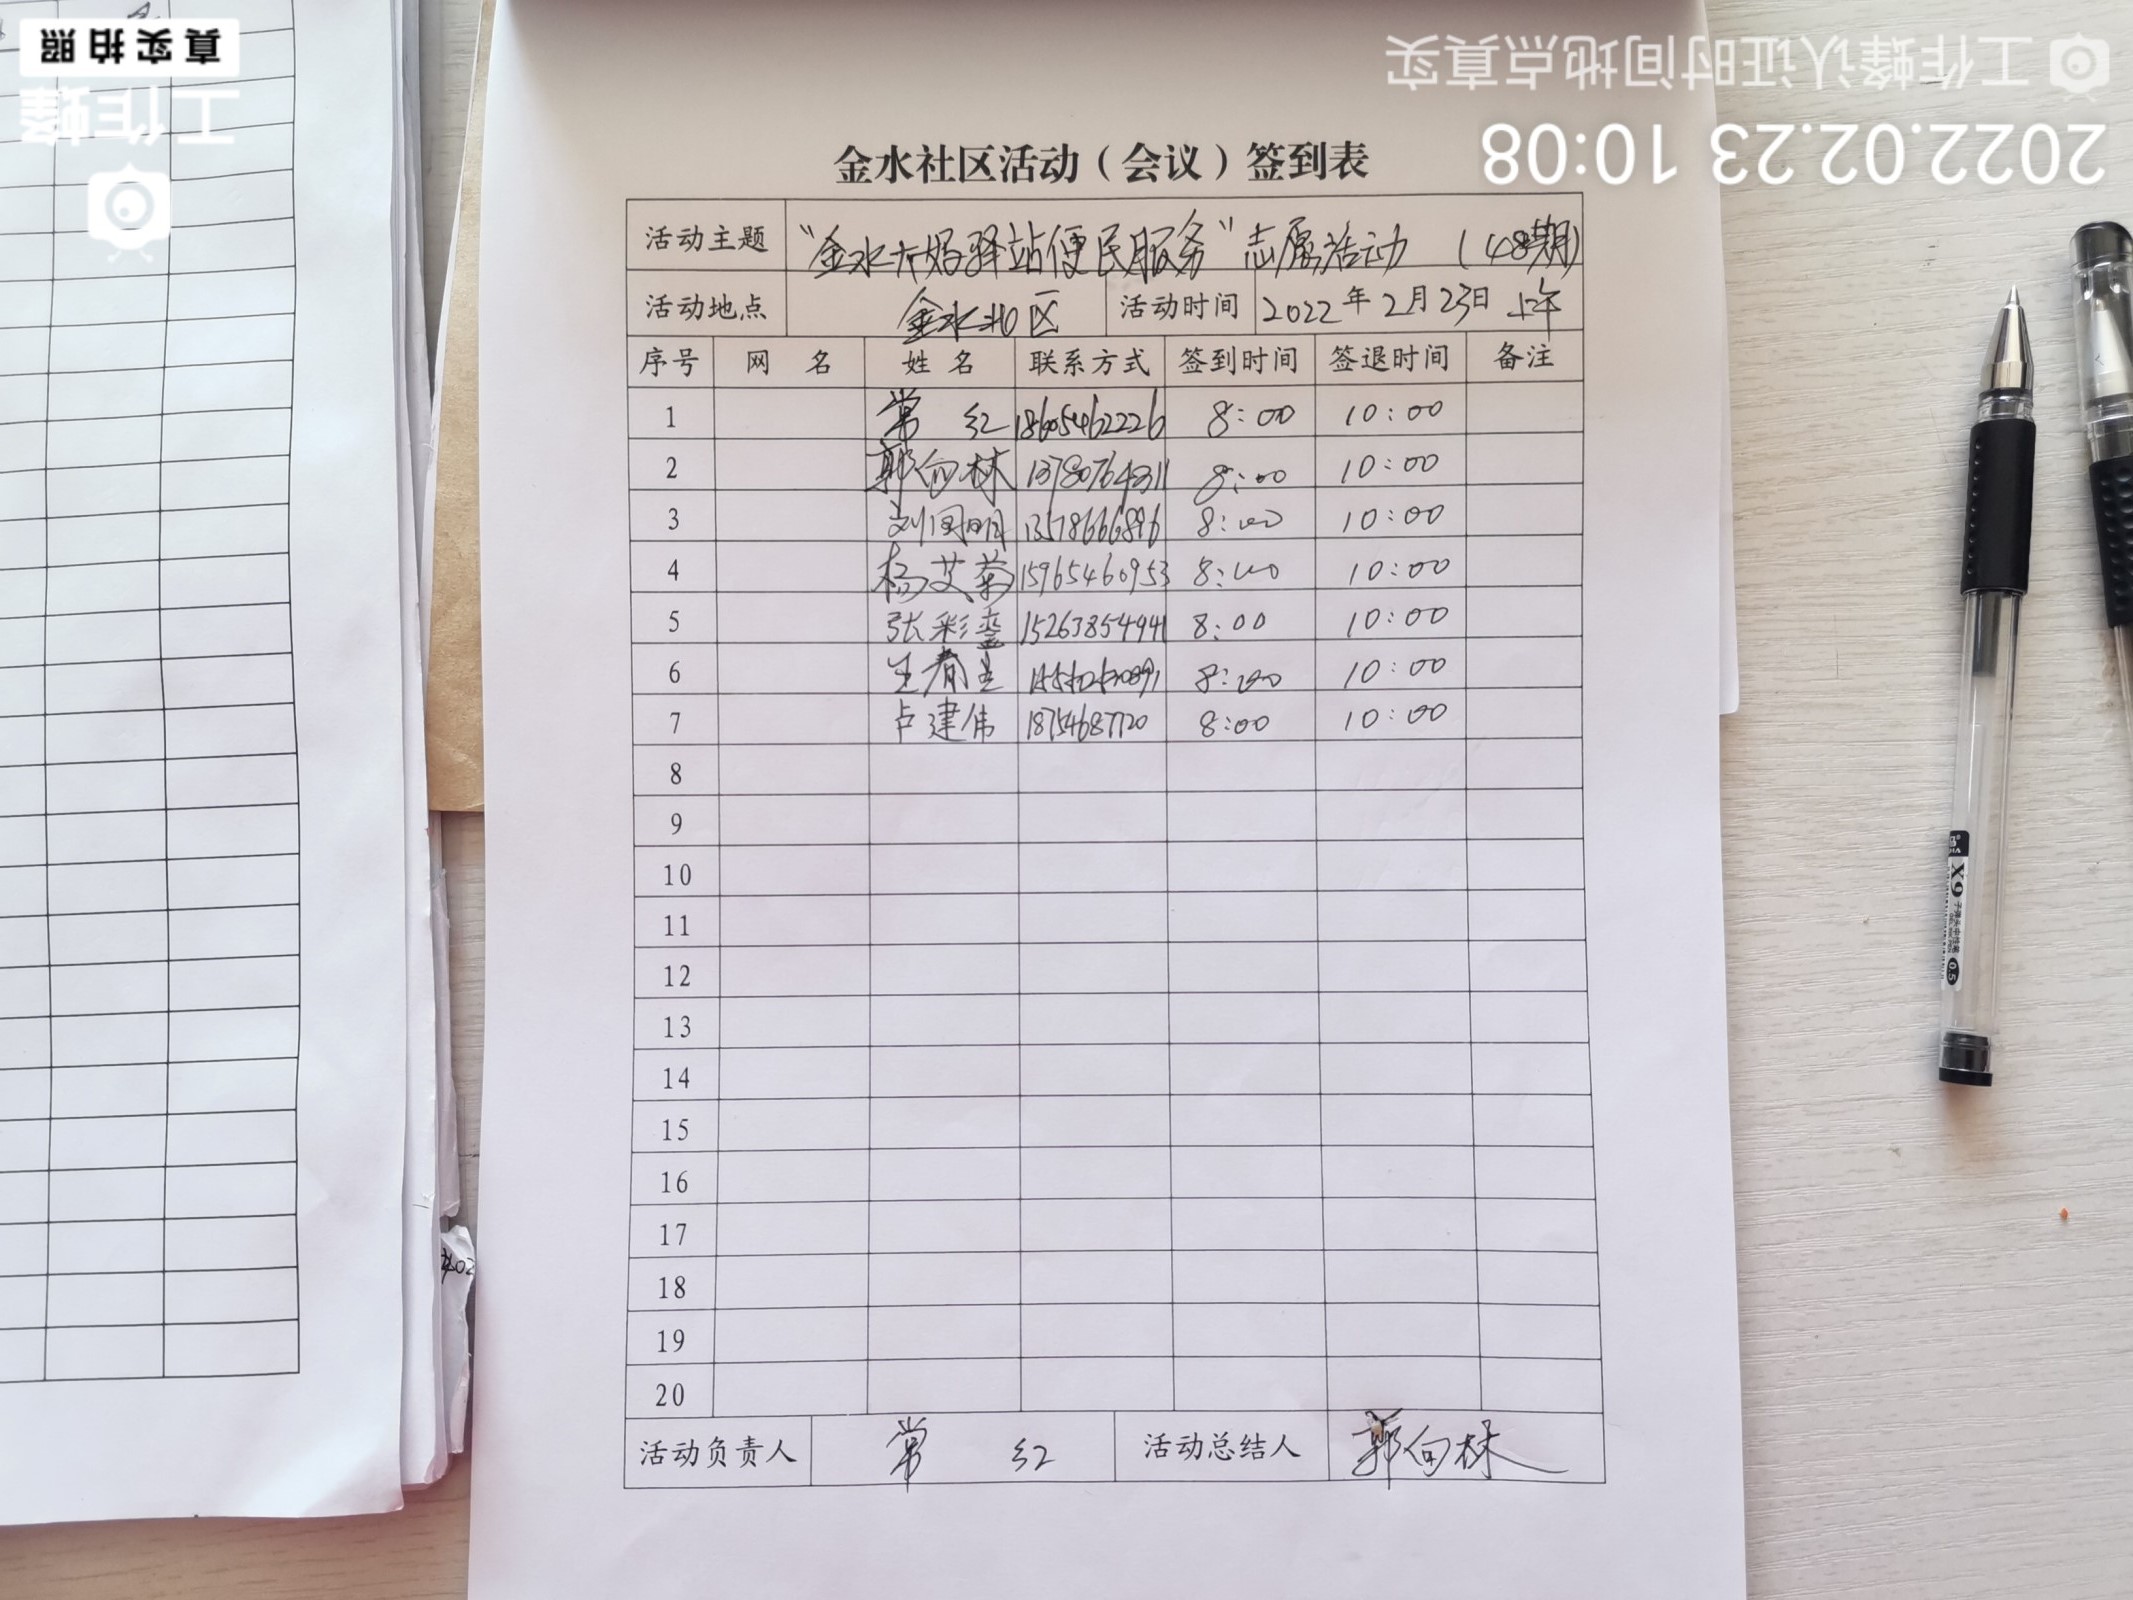 真实拍照
工作蜂
工作蜂认证时间地点真实
2022.02.23 10:08
金水社区活动（会议）签到表
活动主题 “金水大妈驿站便民服务”志愿活动 （48期）
活动地点 金水社区 活动时间 2022年2月23日 上午
序号 网 名 姓 名 联系方式 签到时间 签退时间 备注
1 常 红 18605462226 8:00 10:00
2 郭向林 8:00 10:00
3 8:00 10:00
4 杨艾菊 15965460953 8:00 10:00
5 张彩銮 15263854941 8:00 10:00
6 8:00 10:00
7 卢建伟 18754687720 8:00 10:00
8
9
10
11
12
13
14
15
16
17
18
19
20
活动负责人 常 红 活动总结人 郭向林
X9
0.5